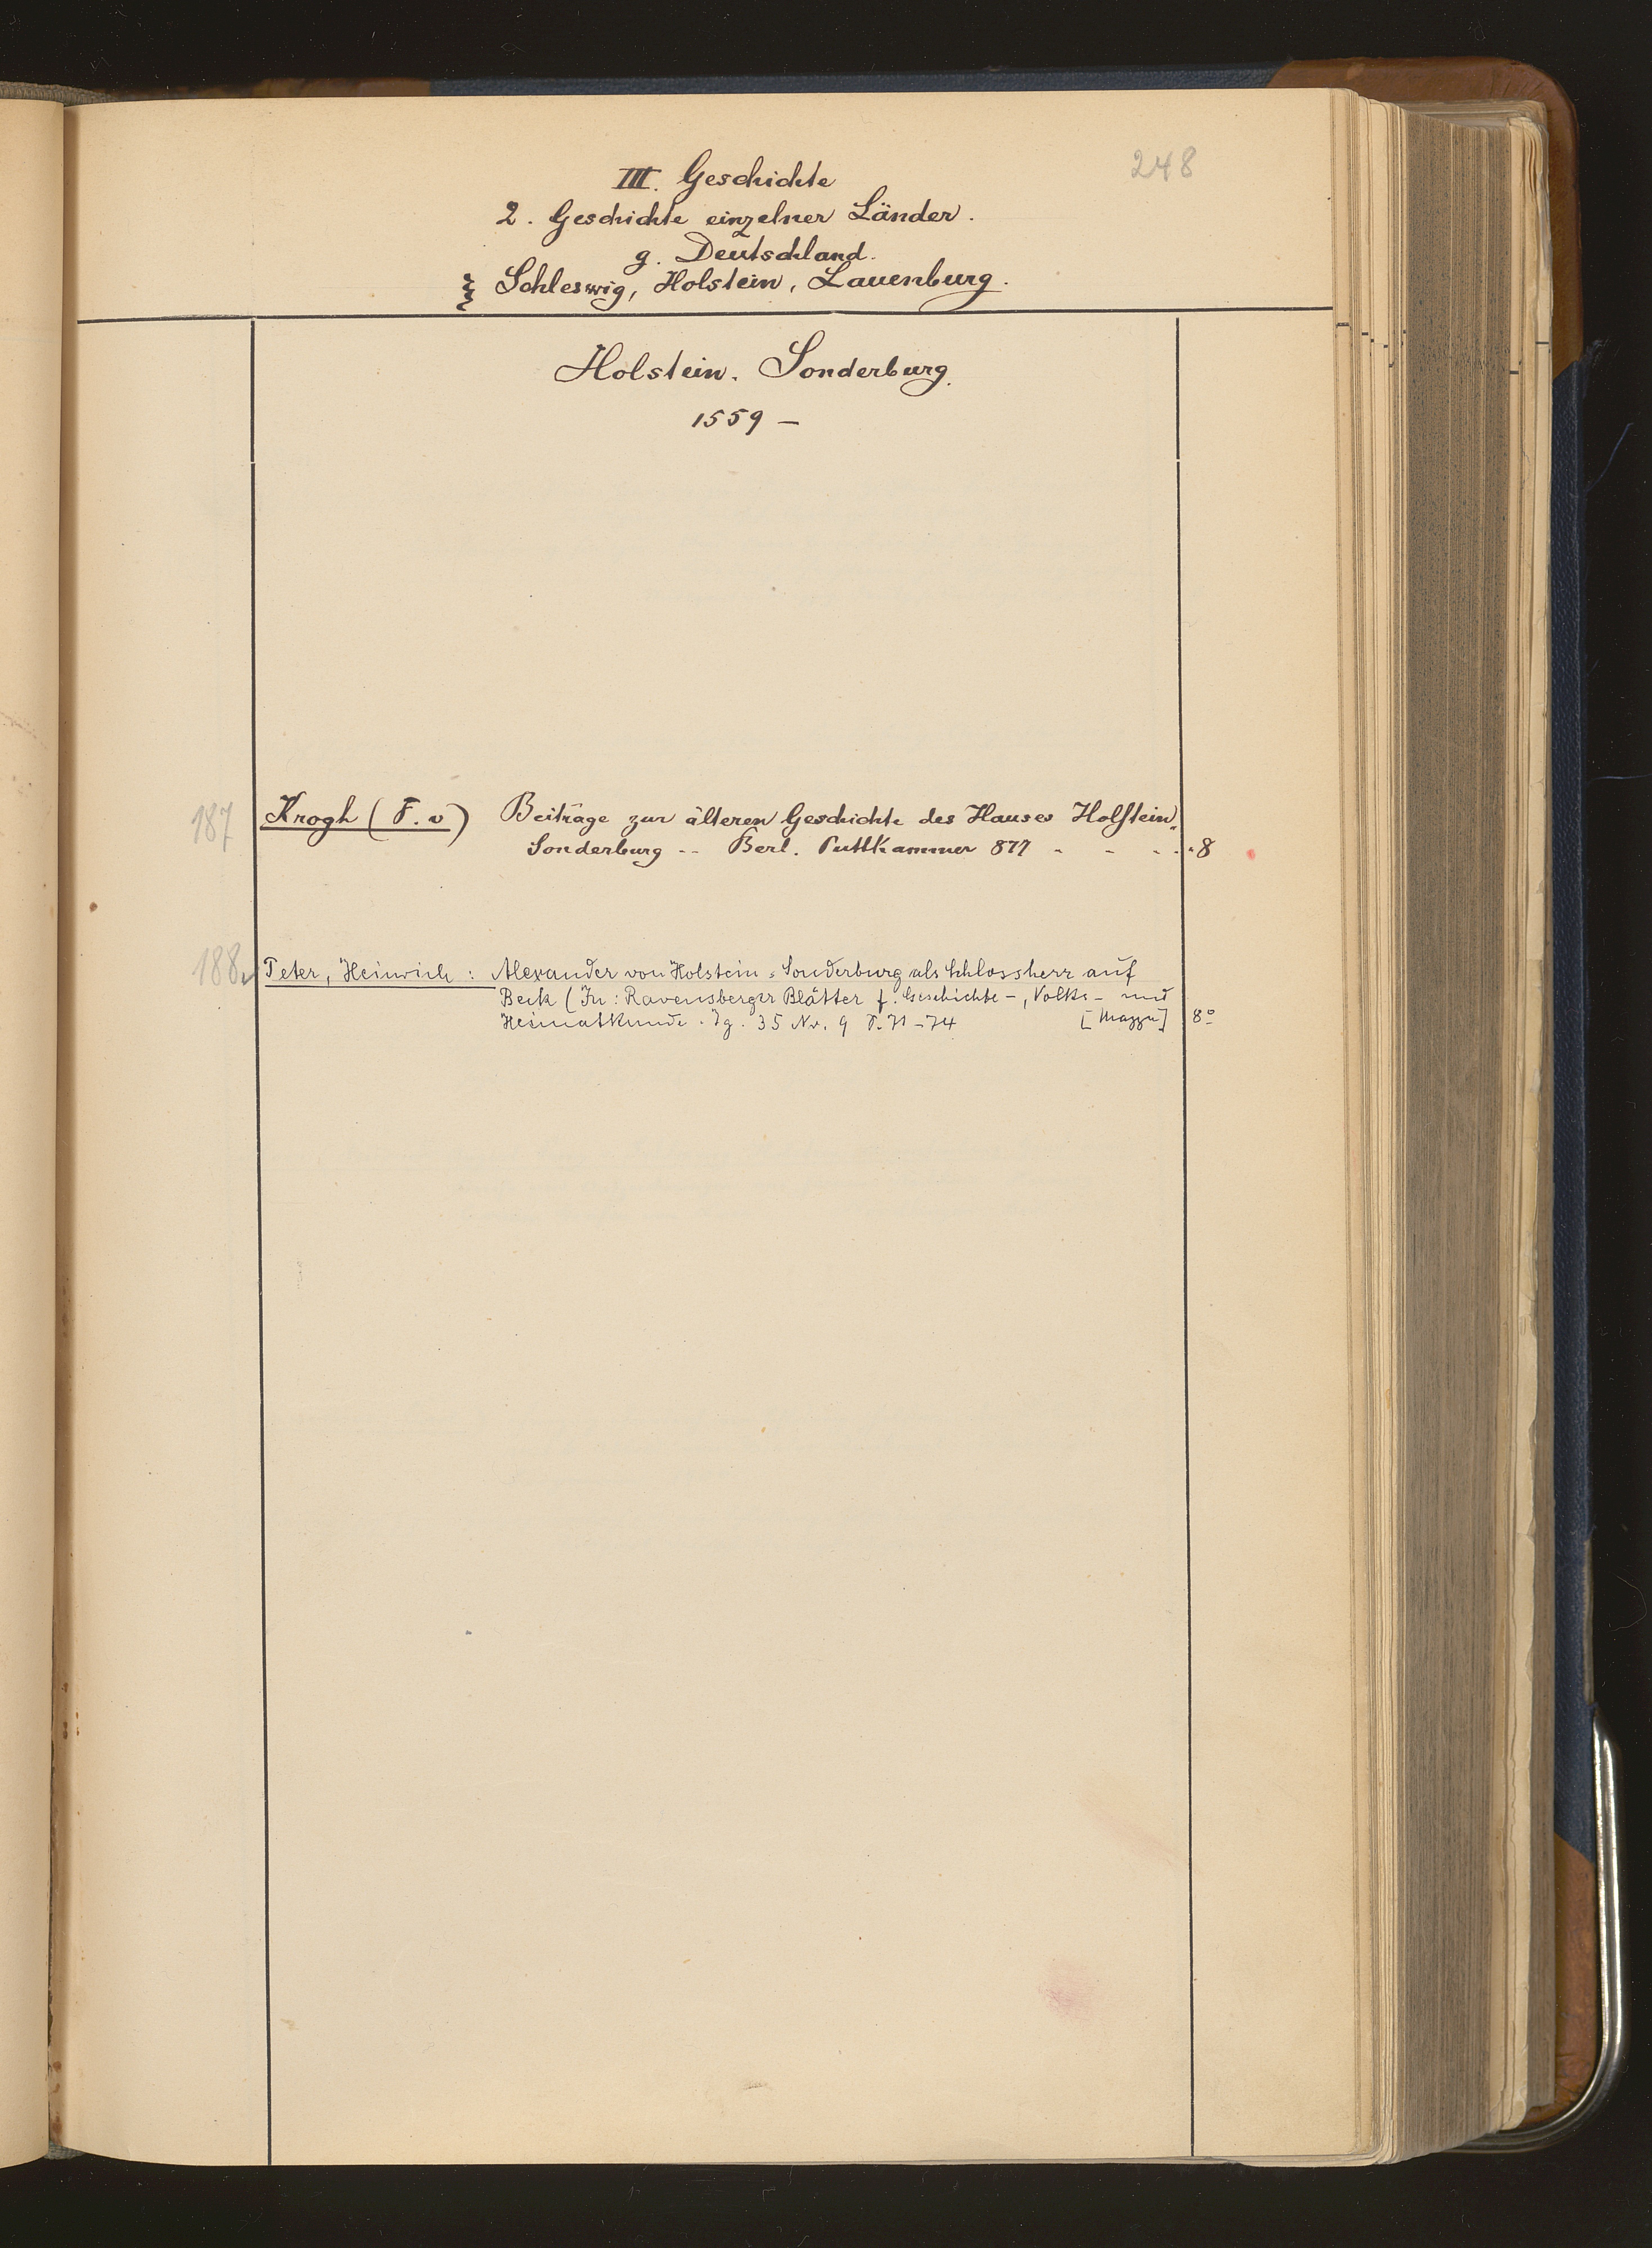 248
III. Geschichte
2. Geschichte einzelner Länder.
g. Deutschland.
Schleswig, Holstein, Lauenburg.
Holstein. Sonderburg.
1559 –
187 Krogh (F. v) Beiträge zur älteren Geschichte des Hauses Holstein-
Sonderburg -- Berl. Puttkammer 877 - - - - 8
188 Peter, Heinrich: Alexander von Holstein-Sonderburg als Schlossherr auf
Beck (In: Ravensberger Blätter f. Geschichte-, Volks- und
Heimatkunde. Jg. 35 Nr. 9 S. 71-74 [Mappe] 8°